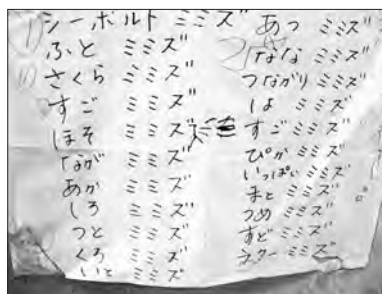 シーボルトミミズ
ふとミミズ
さくらミミズ
すごミミズ
ほそミミズ
ながミミズ
あかミミズ
しろミミズ
つとミミズ
くろミミズ
いとミミズ
あつミミズ
ばななミミズ
つながりミミズ
はミミズ
すごミミズ
ぴかミミズ
いっぱいミミズ
まとミミズ
つめミミズ
すどミミズ
ミミズ